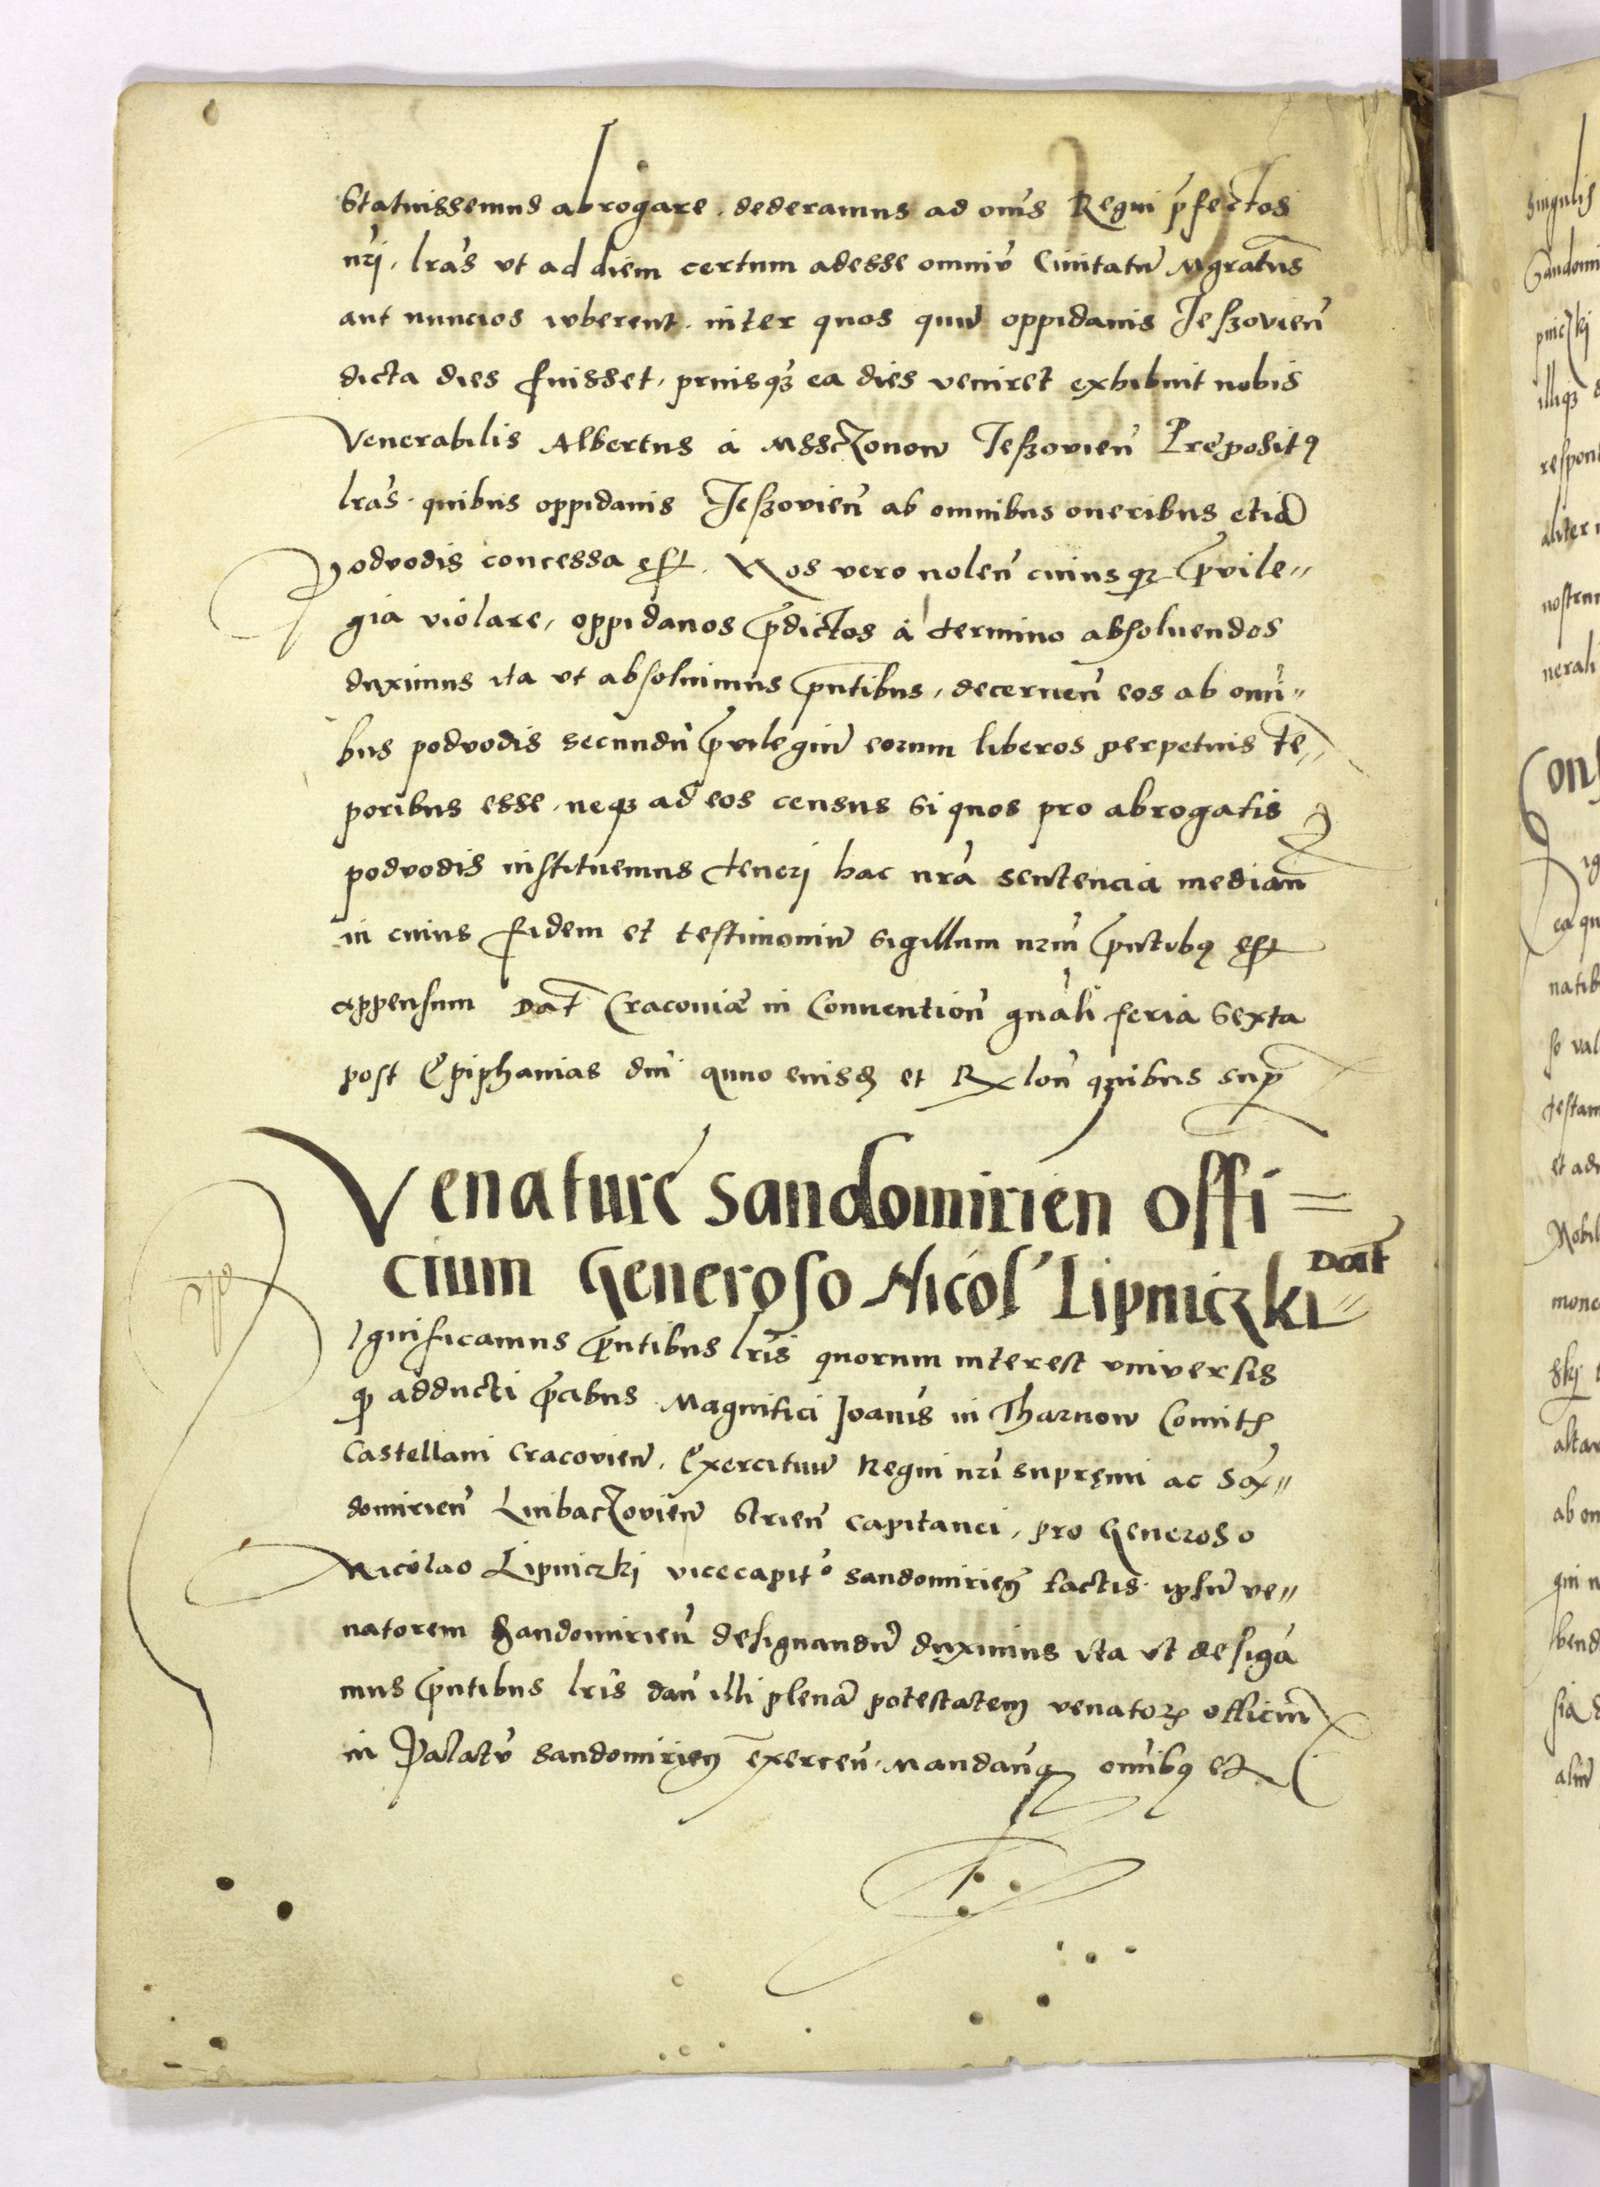 Statuissemus abrogare, dederamus ad om̃s Regni p̃fectos
nr̃i, lr̃as ut ad diem certum adesse omniũ Ciuitatũ Mgratus̃
aut nuncios iuberent, inter quos quũ oppidanis Jeszovien̄
dicta dies fuisset, priusq̃ ea dies veniret exhibuit nobis
Venerabilis Albertus á Mssczonow Jeszovien̄ Prepositꝰ
lr̃as, quibus oppidanis Jeszovien̄ ab omnibus oneribus etiã
podvodis concessa est. Nos vero nolen̄ cuiusqꝫ p̃vile=
gia violare, oppidanos p̃dictos á termino absoluendos
duximus ita ut absoluimus p̃ntibus, decernen̄ eos ab omĩ=
bus podvodis secundũ p̃vilegiũ eorum liberos perpetuis tẽ=
poribus esse, neqꝫ ad eos census si quos pro abrogatis
podvodis instituemus teneri hac nr̃a sentencia median̄
in cuius fidem et testimoniũ sigillum nr̃m p̃ntibꝰ est
appensum Dat̃ Cracoviæ in Convention̄ gñali feria Sexta
post Epiphanias dñi
quibus supr̃
Venature Sandomirien Offi=
cium Generoso Nicol' Lipniczki= Dat̃
Significamus p̃ntibus lr̃is quorum interest universis
qꝫ adducti p̃cibus Magnifici Joanis̃ in Tharnow Comitꝭ
Castellani Cracovien̄, Exercituũ Regni nr̃i supremi ac Sañ=
domirien̄ Liubaczovien̄ Strien̄ capitanei, pro Generoso
Nicolao Lipniczki vicecapit° Sandomirien̄ factis, ipsũ ve=
natorem Sandomirien̄ designandũ duximus ita ut desigã
mus p̃ntibus lr̃is dan̄ illi plenã potestatem venatorꝭ officiũ
in Palatũ Sandomirien̄ exercen̄, Mandan̄qꝫ omĩbꝰ et